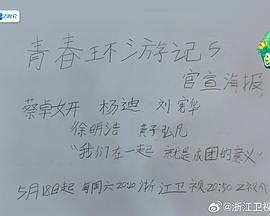 青春环游记5
官宣海报
蔡卓妍 杨迪 刘宪华
徐明浩 黄子弘凡
“我们在一起 就是成团的意义”
5月18日起 每周六20:20 浙江卫视 20:50 Z视介
@浙江卫视